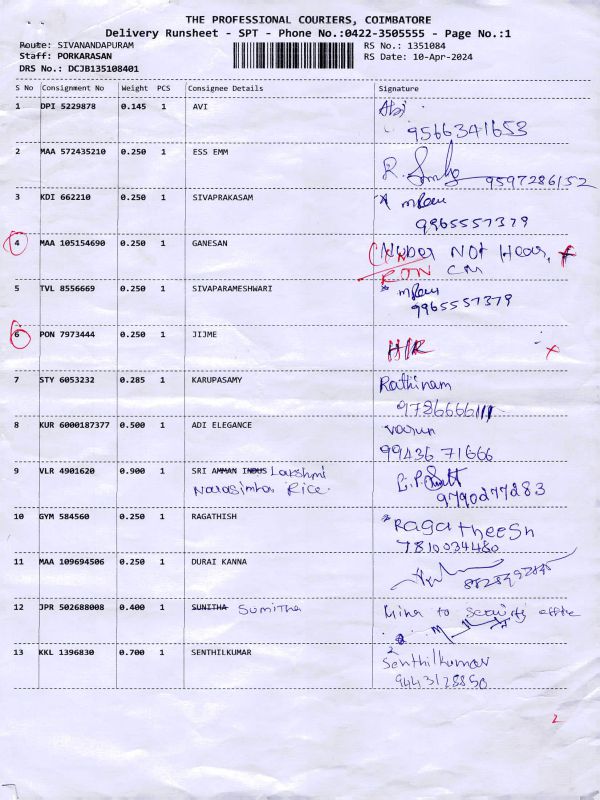 THE PROFESSIONAL COURIERS, COIMBATORE
Delivery Runsheet - SPT - Phone No.:0422-3505555 - Page No.:1
Route: SIVANANDAPURAM RS No.: 1351084
Staff: PORKARASAN RS Date: 10-Apr-2024
DRS No.: DCJB135108401
S No Consignment No Weight PCS Consignee Details Signature
1 DPI 5229878 0.145 1 AVI Abi
9566341653
2 MAA 572435210 0.250 1 ESS EMM R.
9597286152
3 KDI 662210 0.250 1 SIVAPRAKASAM
9965557379
4 MAA 105154690 0.250 1 GANESAN Number Not Hear,
CM
5 TVL 8556669 0.250 1 SIVAPARAMESHWARI
9965557379
6 PON 7973444 0.250 1 JIJME
7 STY 6053232 0.285 1 KARUPASAMY Rathinam
9786666111
8 KUR 6000187377 0.500 1 ADI ELEGANCE Varun
99436 71666
9 VLR 4901620 0.900 1 SRI AMMAN INDUS Lakshmi
Narasimha Rice.
9790277283
10 GYM 584560 0.250 1 RAGATHISH Ragatheesh
7810034480
11 MAA 109694506 0.250 1 DURAI KANNA
12 JPR 502688008 0.400 1 SUNITHA Sumitha to Security office
13 KKL 1396830 0.700 1 SENTHILKUMAR Senthilkumar
9443128850
2